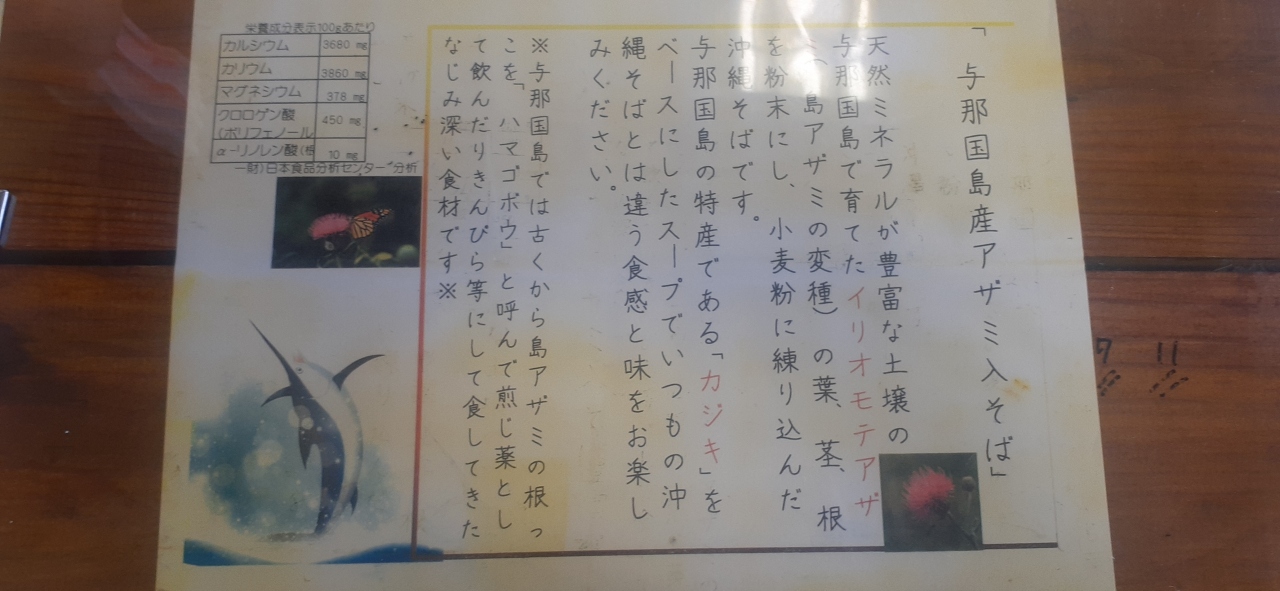 「与那国島産アザミ入そば」
天然ミネラルが豊富な土壌の
与那国島で育てたイリオモテアザ
ミ（島アザミの変種）の葉、茎、根
を粉末にし、小麦粉に練り込んだ
沖縄そばです。
与那国島の特産である「カジキ」を
ベースにしたスープでいつもの沖
縄そばとは違う食感と味をお楽し
みください。
※与那国島では古くから島アザミの根っ
こを「ハマゴボウ」と呼んで煎じ薬とし
て飲んだりきんぴら等にして食してきた
なじみ深い食材です※
栄養成分表示100gあたり
カルシウム 3680 mg
カリウム 3860 mg
マグネシウム 378 mg
クロロゲン酸
(ポリフェノール 450 mg
α-リノレン酸(根 10 mg
一財)日本食品分析センター分析
11